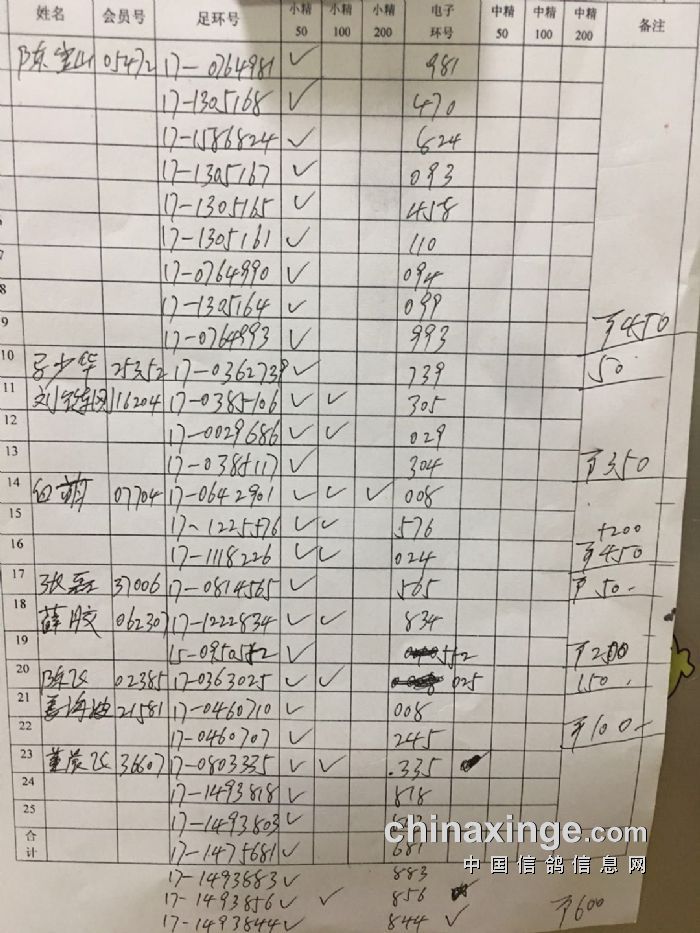 姓名 会员号 足环号 小精50 小精100 小精200 电子环号 中精50 中精100 中精200 备注
陈宝山 05472 17-0764981 ✓ 981
17-1305168 ✓ 470
17-1586824 ✓ 624
17-1305167 ✓ 093
17-1305165 ✓ 458
17-1305161 ✓ 110
17-0764990 ✓ 094
8 17-1305164 ✓ 099
9 17-0764993 ✓ 993 ¥450
10 少华 25352 17-0362739 ✓ 739 50
11 刘 16204 17-0385106 ✓ ✓ 305
12 17-0029686 ✓ ✓ 029
13 17-0385117 ✓ 304 ¥350
14 白鹏 07704 17-0642901 ✓ ✓ ✓ 008
15 17-1225576 ✓ ✓ 576 +200
16 17-1118226 ✓ ✓ 024 ¥450
17 张磊 37006 17-0814565 ✓ 565 ¥50-
18 薛胶 062307 17-1222834 ✓ ✓ 834
19 15-0950552 ✓ 552 ¥200
20 陈飞 02385 17-0363025 ✓ ✓ 025 150
21 海波 21581 17-0460710 ✓ 008
22 17-0460707 ✓ 245 ¥100-
23 董 飞 36607 17-0803335 ✓ ✓ .335
24 17-1493818 ✓ 818
25 17-1493803 ✓
合计 17-1475681 ✓ 681
17-1493883 ✓ 883
17-1493856 ✓ ✓ 856
17-1493844 ✓ 844 ✓ ¥600
chinaxinge.com
中国信鸽信息网